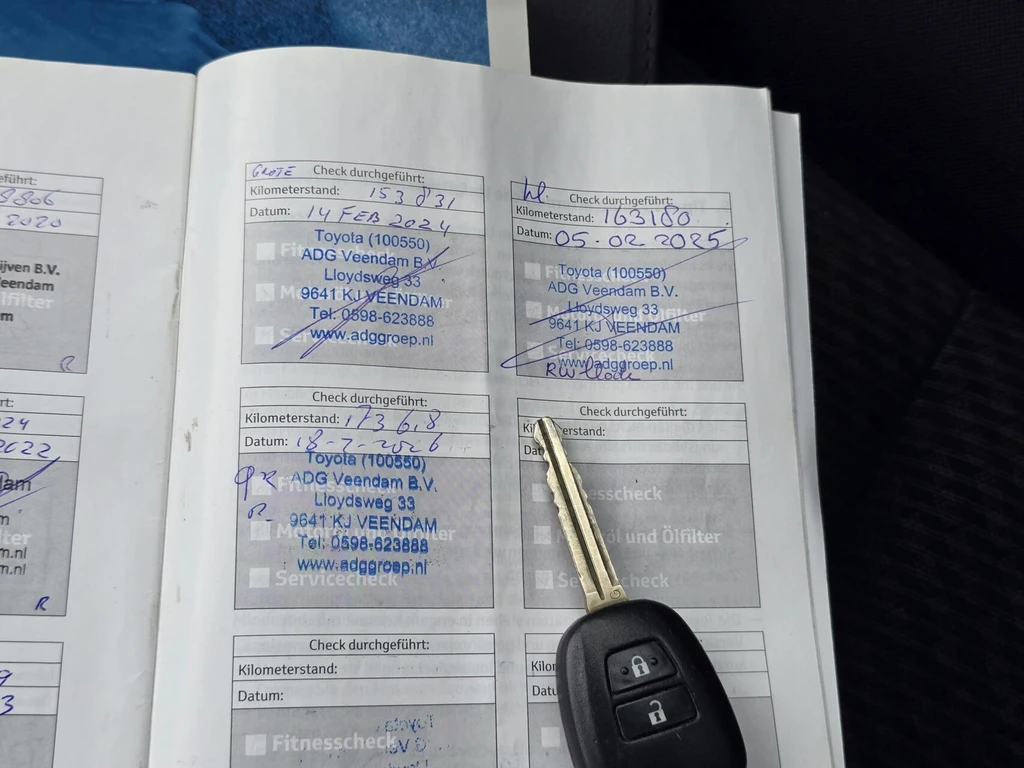 eführt:
2020
ijven B.V.
eendam
lfilter
m
R
24
2022
dam
ter
m
m.nl
m.nl
R
9
3
GROTE Check durchgeführt:
Kilometerstand: 153831
Datum: 14 FEB 2024
Toyota (100550)
ADG Veendam B.V.
Lloydsweg 33
9641 KJ VEENDAM
Tel: 0598-623888
www.adggroep.nl
Kl. Check durchgeführt:
Kilometerstand: 163180
Datum: 05.02.2025
Toyota (100550)
ADG Veendam B.V.
Lloydsweg 33
9641 KJ VEENDAM
Tel: 0598-623888
www.adggroep.nl
Check durchgeführt:
Kilometerstand:
Datum: 18-2-2026
Toyota (100550)
Fitnesscheck
ADG Veendam B.V.
Lloydsweg 33
Motoröl und Ölfilter
9641 KJ VEENDAM
Tel: 0598-623888
www.adggroep.nl
Servicecheck
Check durchgeführt:
Ki erstand:
Dat
nesscheck
M öl und Ölfilter
Servicecheck
Check durchgeführt:
Kilometerstand:
Datum:
Fitnesscheck
Check durchgeführt:
Kilo
Datu